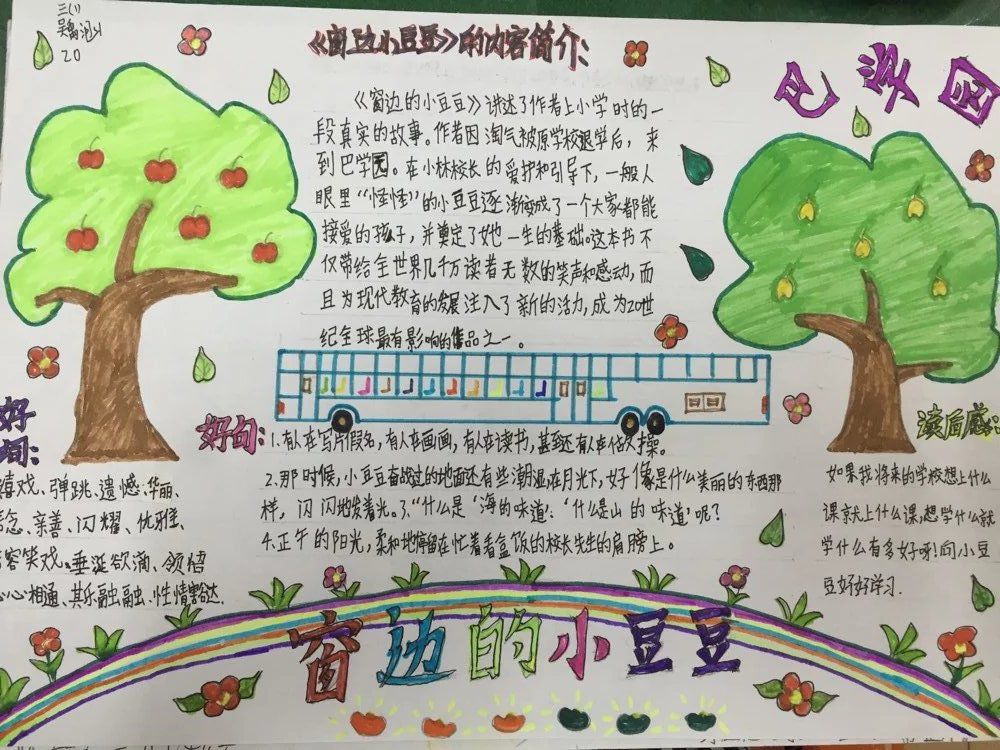 三(1)
20
《窗边小豆豆》的内容简介:
巴学园
《窗边的小豆豆》讲述了作者上小学时的一
段真实的故事。作者因淘气被原学校退学后，来
到巴学园。在小林校长的爱护和引导下，一般人
眼里“怪怪”的小豆豆逐渐变成了一个大家都能
接受的孩子，并奠定了她一生的基础。这本书不
仅带给全世界几千万读者无数的笑声和感动，而
且为现代教育的发展注入了新的活力，成为20世
纪全球最有影响的作品之一。
好
词:
嬉戏、弹跳、遗憾、华丽、
念、亲善、闪耀、优雅、
容笑戏、垂涎欲滴、领悟
心心相通、其乐融融、性情豁达.
好句:
1.有人在写片假名，有人在画画，有人在读书，甚至还有人在做体操。
2.那时候，小豆豆站过的地面还有些潮湿,在月光下，好像是什么美丽的东西那
样，闪闪地发着光。3.“什么是‘海的味道’：‘什么是山的味道’呢？
4.正午的阳光，柔和地停留在忙着看盒饭的校长先生的肩膀上。
读后感:
如果我将来的学校想上什么
课就上什么课,想学什么就
学什么有多好呀!向小豆
豆好好学习.
窗边的小豆豆